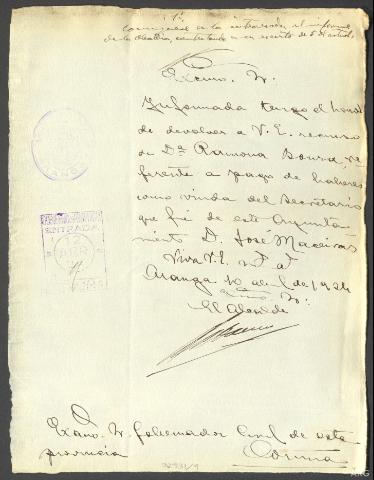 Comuníquese a la interesada el informe
de la Alcaldía, contestando a su escrito de 5 de actual
Excmo. Sr.
Informada tengo el honor
de devolver a V.E. recurso
de Dª Ramona Sousa re-
ferente a pago de haberes
como viuda del Secretario
que fué de este Ayunta-
miento D. José Maceiras
Viva V.E. m.s a.s
Aranga 10 abril de 1924
Excmo. Sr.
El Alcalde
ENTRADA
12
ABR
Excmo. Sr. Gobernador Civil de esta
provincia
Coruña